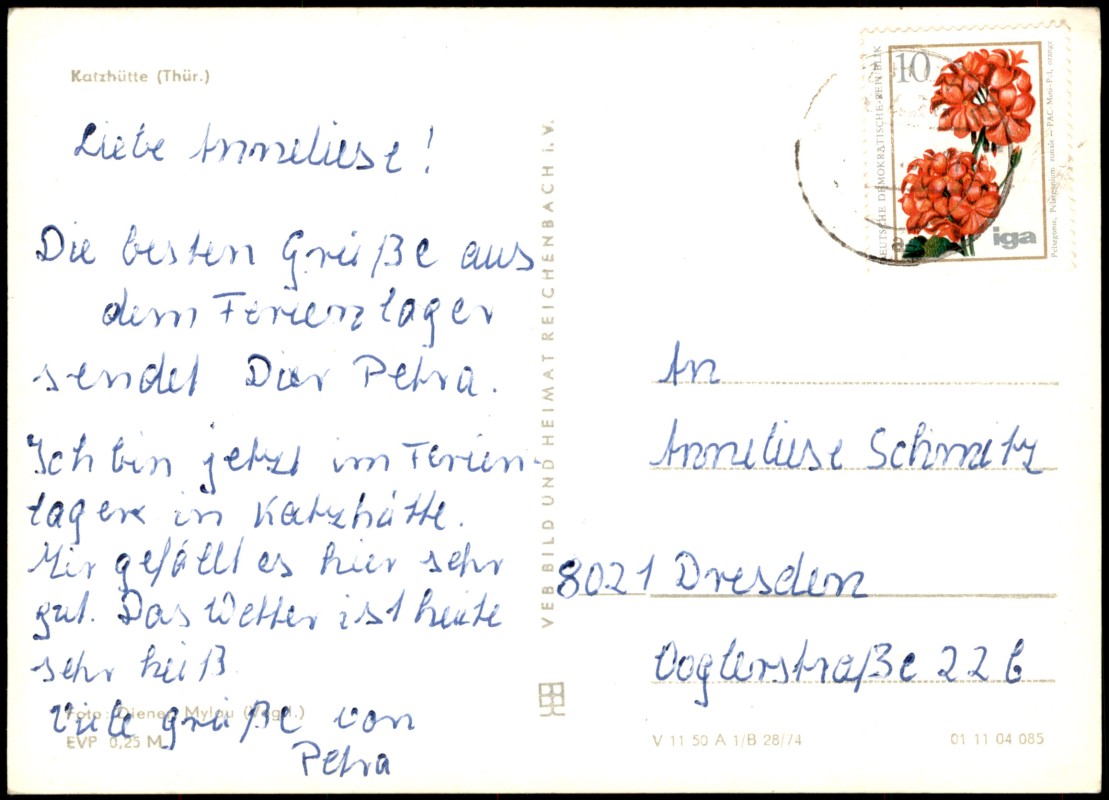 Katzhütte (Thür.)
Liebe Anneliese!
Die besten Grüße aus
dem Ferienlager
sendet Dir Petra.
Ich bin jetzt im Ferien-
lager in Katzhütte.
Mir gefällt es hier sehr
gut. Das Wetter ist heute
sehr heiß.
Viele grüße von
Petra
Foto: Diener, Mylau (Vogtl.)
EVP 0,25 M
VEB BILD UND HEIMAT REICHENBACH i. V.
DEUTSCHE DEMOKRATISCHE REPUBLIK
10
iga
An
Anneliese Schmitz
8021 Dresden
22 b
V 11 50 A 1/B 28/74
01 11 04 085